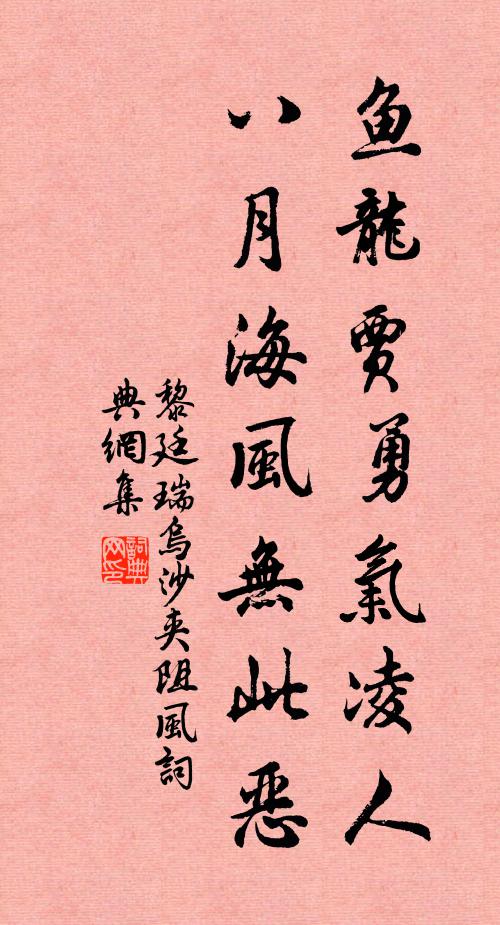 鱼龍賈勇氣凌人
八月海風無此惡
黎廷瑞烏沙夾阻風詞
典網集
詞典
网印